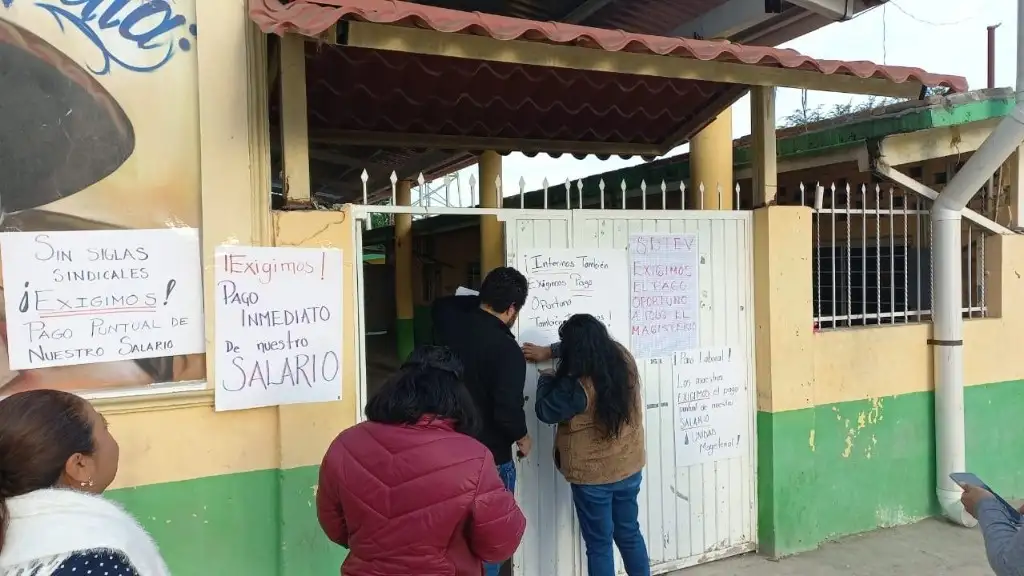 SIN SIGLAS
SINDICALES
¡EXIGIMOS!
PAGO PUNTUAL DE
NUESTRO SALARIO
¡Exigimos!
PAGO
INMEDIATO
De nuestro
SALARIO
¡Interinos También
Exigimos Pago
Oportuno
También
EXIGIMOS
EL PAGO
OPORTUNO
A TODO EL
MAGISTERIO
Paro Laboral!
Los maestros
EXIGIMOS el pago
puntual de nuestro
SALARIO
¡UNIDAD
Magisterial!